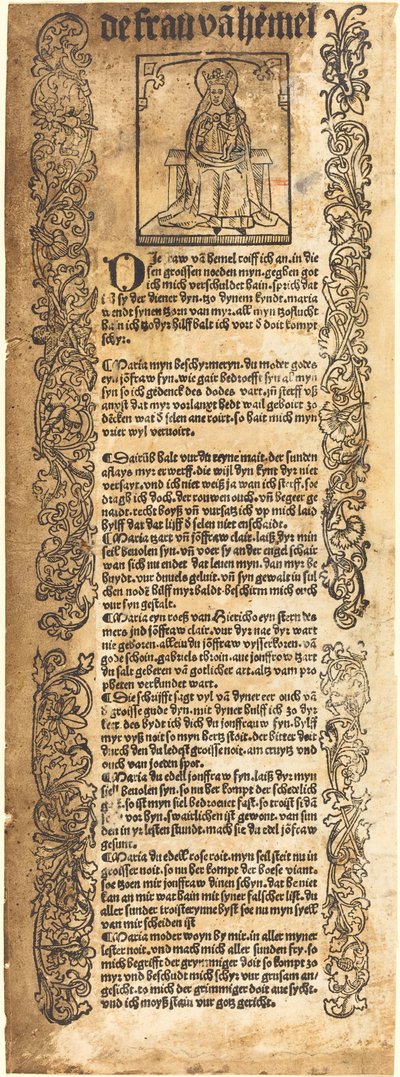 de frau vā hēmel
O Je fraw vā hemel roiff ich an. in die
sen groissen noeden myn. gegben got
ich mich verschuldet hain. sprich dat
ich sy der diener dyn. tzo dynem kyndt. maria
wendt synen tzorn van myr. all myn tzoflucht
hain ich tzo dyr. hilff balt ich vort d̄ doit kompt
schyr.
¶ Maria myn beschyrmeryn. du moder godes
eyn jōfraw fyn. wie gair bedroefft syn al myn
syn so ich gedenck des dodes vart. jn̄ sterff vß
anxst dat myr vorlanxt hedt wail geboirt zo
decken wat d̄ selen ane roirt. so hait mich myn
vriet wyl vervoirt.
¶ Dairūb halt vur du reyne mait. der sunden
aflays myr erwerff. die wijl dyn kynt dyr niet
versayt. vnd ich niet weiß ja wan ich sterff. soe
dragh ich doch. der rouwen ouch. vn̄ begeer ge
naidt. recht boyß vn̄ vursatz ich vp mich laid
hylff dat dat lijff d̄ selen niet enschaidt.
¶ Maria tzart vn̄ jōffraw clair. laiß dyr min
seil beuolen syn. vn̄ voer sy an der engel schair
wan sich nu endet dat leuen myn. dan myr be
huydt. vur duuels geluit. vn̄ syn gewalt in sul
chen nodē hilff myr baldt. beschirm mich ouch
vur syn gestalt.
¶ Maria eyn roeß van Hiericho eyn stern des
mers jnd jōffraw clair. vur dyr nae dyr wart
nie geboren. alleyn du jōffraw vysserkoren. vā
gode schoin. gabriels throin. ane jonffrow tzart
du salt geberen vā gotlicher art. altz vam pro
pheten verkundet wart.
¶ Die schrifft sagt vyl vā dyner eer ouch vā
d̄ groisse gude dyn. mit dyner hulff ich zo dyr
ker. des bydt ich dich du jonffraw fyn. hylff
myr vyß noit so myn hertz stoit. der bitter doit
durch den du ledest groisse noit. am cruytz vnd
ouch van joeden spot.
¶ Maria du edell jonffraw fyn. laiß dyr myn
siell beuolen syn. so nu her kompt der schedlich
so ist myn siel bedroeuet fast. so troist si dā
vor hyn. swairlichen ist gewont. van sun
den in yr lesten stundt. mach sie du edel jōfraw
gesunt.
¶ Maria du edell rose roit. myn seil steit nu in
groisser noit. so nu her kompt der boese viant.
soe tzoen mir jonffraw dinen schyn. dat he niet
kan an mir wat hain mit syner falscher list. du
aller sunder troisterynne byst soe nu myn syell
van mir scheiden ist
¶ Maria moder woyn by mir. in aller myner
lester noit. vnd mach mich aller sunden fry. so
mich begrifft der grymmiger doit so kompt zo
myr vnd beschudt mich schyr vur grusam an/
gesicht. so mich der grimmiger doit ane sycht.
vnd ich moyß stain vur gotz gericht.